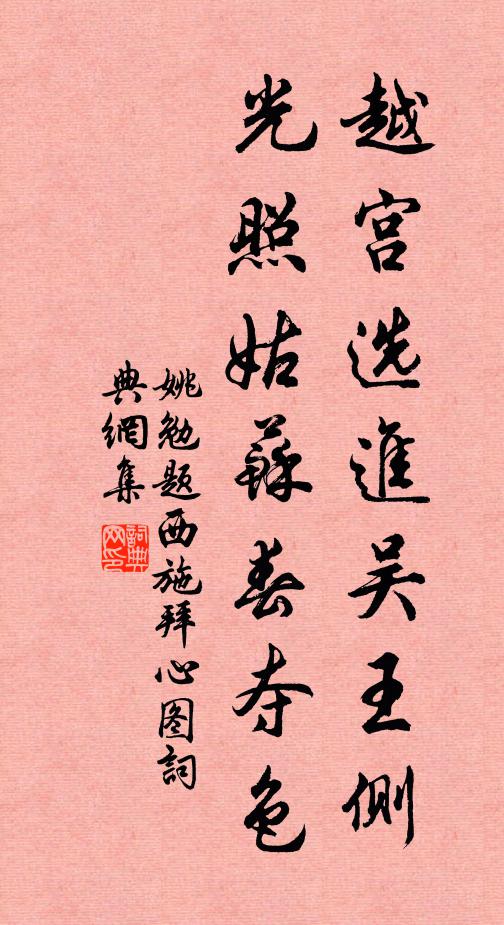 越宫选進吴王侧
光照姑蘇春夺色
姚勉题西施拜心图詞
典網集
詞典
网印